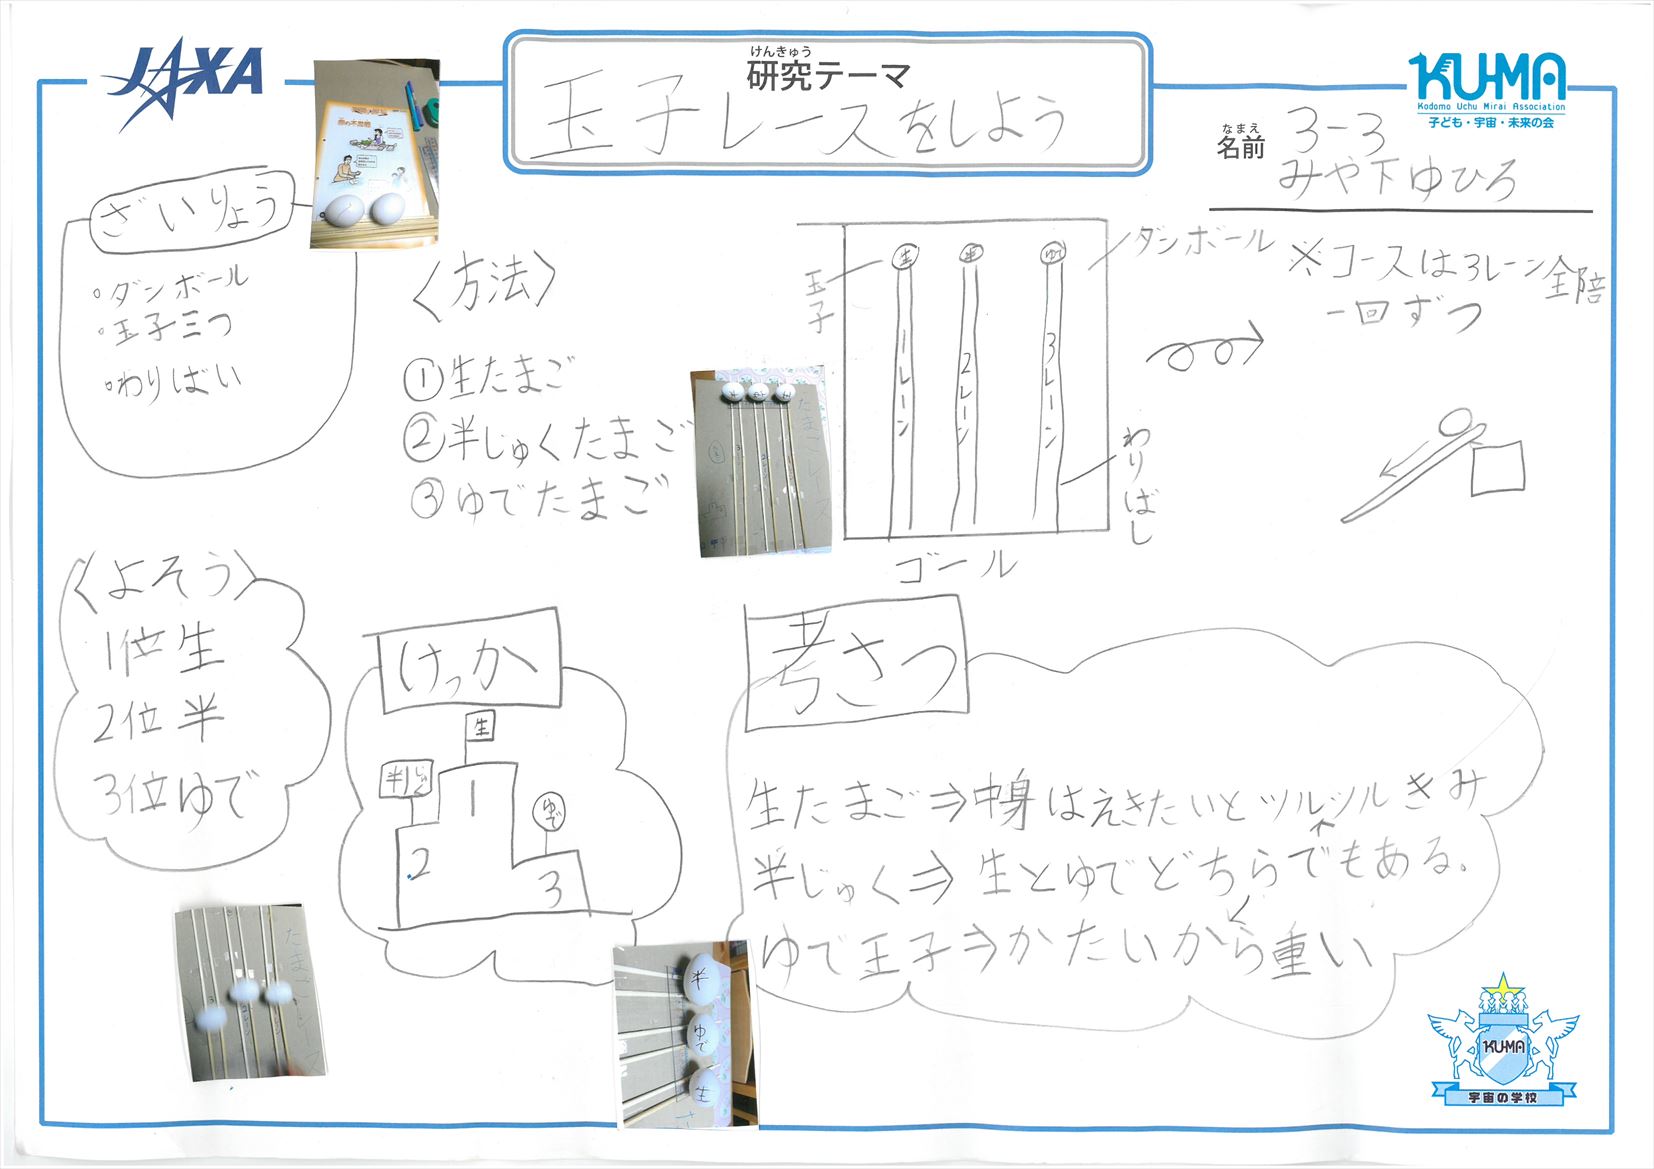 JAXA
けんきゅう
研究テーマ
玉子レースをしよう
KU-MA
Kodomo Uchu Mirai Association
子ども・宇宙・未来の会
なまえ
名前
3-3
みや下ゆひろ
ざいりょう
・ダンボール
・玉子三つ
・わりばい
〈方法〉
①生たまご
②半じゅくたまご
③ゆでたまご
玉子
生
半
ゆで
1レーン
2レーン
3レーン
ダンボール
わりばし
ゴール
※コースは3レーン全陪
一回ずつ
たまごレース
〈よそう〉
1位生
2位半
3位ゆで
けっか
生
半じゅく
ゆで
1
2
3
考さつ
生たまご⇒中身はえきたいとツルツルきみ
半じゅく⇒生とゆでどちらでもある。
ゆで玉子⇒かたいから重い
たまごレース
半
ゆで
生
KU-MA
宇宙の学校